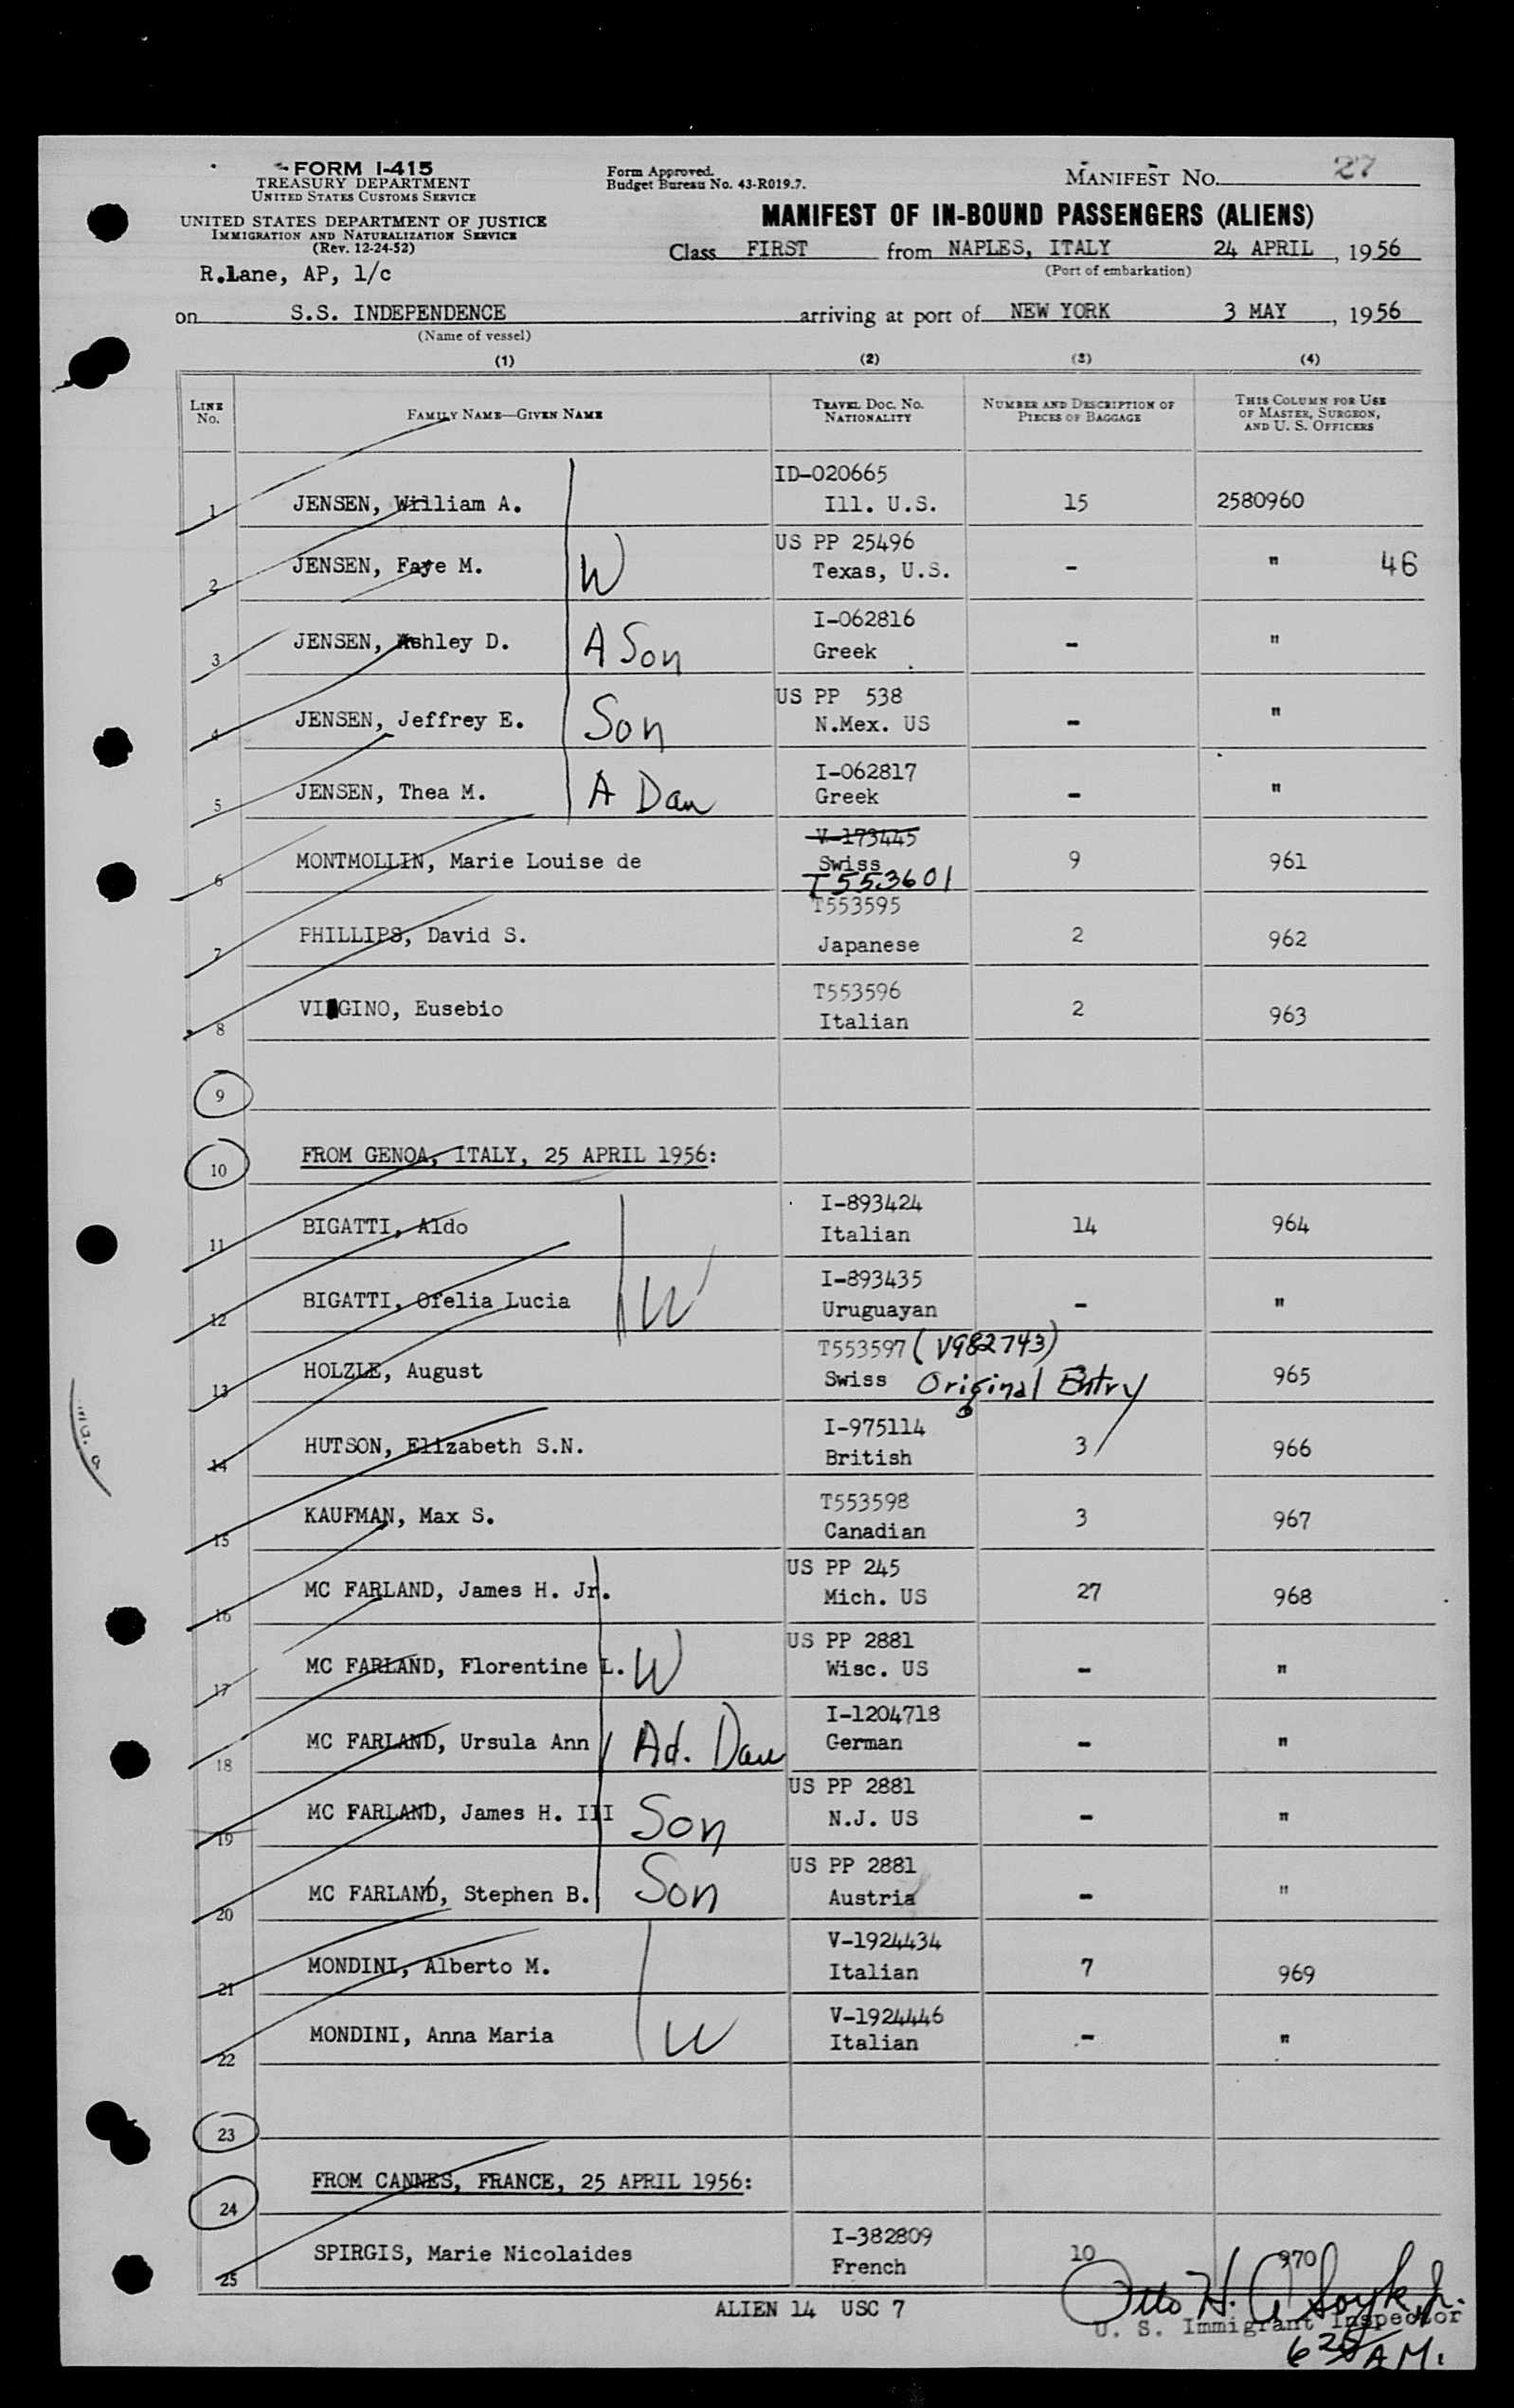 FORM I-415
TREASURY DEPARTMENT
UNITED STATES CUSTOMS SERVICE
UNITED STATES DEPARTMENT OF JUSTICE
IMMIGRATION AND NATURALIZATION SERVICE
(Rev. 12-24-52)
R.Lane, AP, 1/c
Form Approved.
Budget Bureau No. 43-R019.7.
MANIFEST NO. 27
MANIFEST OF IN-BOUND PASSENGERS (ALIENS)
Class FIRST from NAPLES, ITALY 24 APRIL, 1956
(Port of embarkation)
on S.S. INDEPENDENCE arriving at port of NEW YORK 3 MAY, 1956
(Name of vessel)
(1) (2) (3) (4)
LINE No. FAMILY NAME—GIVEN NAME TRAVEL DOC. NO. NATIONALITY NUMBER AND DESCRIPTION OF PIECES OF BAGGAGE THIS COLUMN FOR USE OF MASTER, SURGEON, AND U. S. OFFICERS
1 JENSEN, William A. ID-020665 Ill. U.S. 15 2580960
2 JENSEN, Faye M. W US PP 25496 Texas, U.S. - " 46
3 JENSEN, Ashley D. A Son I-062816 Greek - "
4 JENSEN, Jeffrey E. Son US PP 538 N.Mex. US - "
5 JENSEN, Thea M. A Dau I-062817 Greek - "
6 MONTMOLLIN, Marie Louise de V-173445 Swiss T553601 9 961
7 PHILLIPS, David S. T553595 Japanese 2 962
8 VI GINO, Eusebio T553596 Italian 2 963
9
10 FROM GENOA, ITALY, 25 APRIL 1956:
11 BIGATTI, Aldo I-893424 Italian 14 964
12 BIGATTI, Ofelia Lucia W I-893435 Uruguayan - "
13 HOLZLE, August T553597 (V982743) Swiss Original Entry 965
14 HUTSON, Elizabeth S.N. I-975114 British 3 966
15 KAUFMAN, Max S. T553598 Canadian 3 967
16 MC FARLAND, James H. Jr. US PP 245 Mich. US 27 968
17 MC FARLAND, Florentine L. W US PP 2881 Wisc. US - "
18 MC FARLAND, Ursula Ann Ad. Dau I-1204718 German - "
19 MC FARLAND, James H. III Son US PP 2881 N.J. US - "
20 MC FARLAND, Stephen B. Son US PP 2881 Austria - "
21 MONDINI, Alberto M. V-1924434 Italian 7 969
22 MONDINI, Anna Maria W V-1924446 Italian - "
23
24 FROM CANNES, FRANCE, 25 APRIL 1956:
25 SPIRGIS, Marie Nicolaides I-382809 French 10 970
ALIEN 14 USC 7
Otto H.
U. S. Immigrant Inspector
A.M.